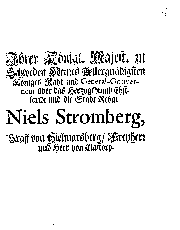 Ihrer Königl. Majest. zu
Schweden Meines Allergnädigsten
Königes Raht und General-Gouver-
neur über das Hertzogthumb Ehst-
lande und die Stadt Reval
Niels Stromberg,
Graff von Hielmarsberg / Freyherr
und Herr von Clastorp.